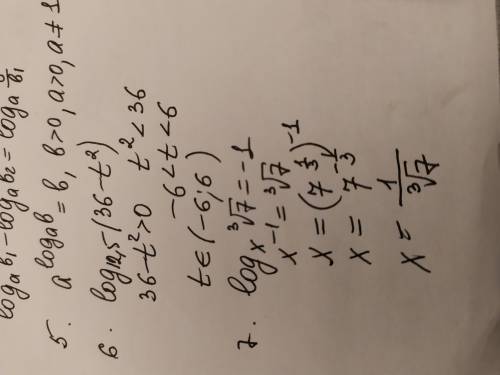 log_a b₁ - log_a b₂ = log_a b/b₁
5. a^(log_a b) = b, b>0, a>0, a≠1
6. log₁₂,₅(36-t²)
36-t²>0 t²<36
-6<t<6
t∈(-6;6)
7. log_x ∛7 = -1
x⁻¹ = ∛7
x = (7^(1/3))⁻¹
x = 7^(-1/3)
x = 1/∛7